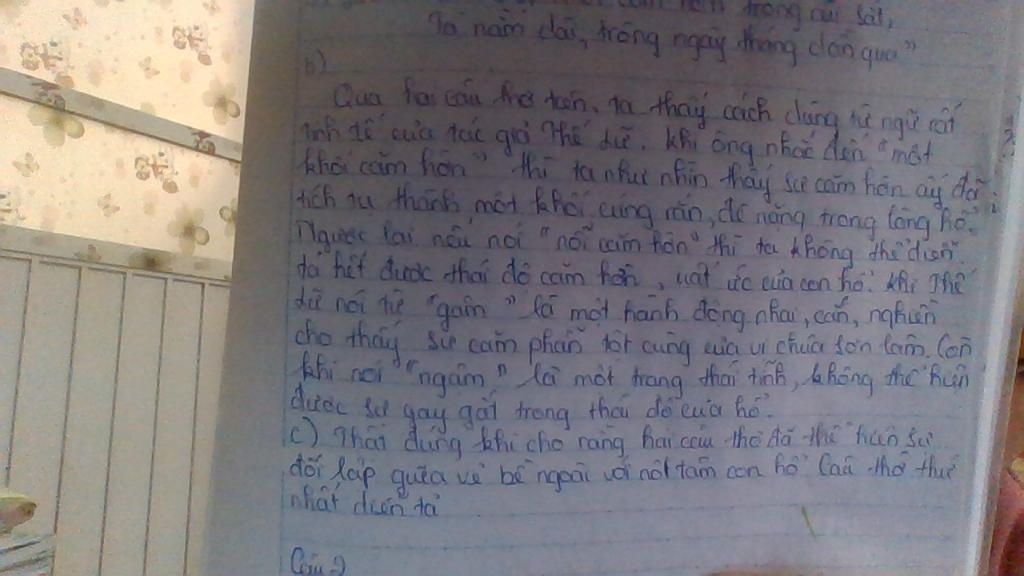 trong cũi sắt,
Ta nằm dài, trông ngày tháng dần qua"
b)
Qua hai câu thơ trên, ta thấy cách dùng từ ngữ rất
tinh tế của tác giả Thế Lữ. Khi ông nhắc đến "một
khối căm hờn" thì ta như nhìn thấy sự căm hờn ấy đã
tích tụ thành một khối cứng rắn, đè nặng trong lòng hổ.
Ngược lại nếu nói "nỗi căm hờn" thì ta không thể diễn
tả hết được thái độ căm hờn, uất ức của con hổ. Khi Thế
Lữ nói từ "gậm" là một hành động nhai, cắn, nghiến
cho thấy sự căm phẫn tột cùng của vị chúa sơn lâm. Còn
khi nói "ngậm" là một trạng thái tĩnh, không thể hiện
được sự gay gắt trong thái độ của hổ.
c) Thật đúng khi cho rằng hai câu thơ đã thể hiện sự
đối lập giữa vẻ bề ngoài với nội tâm con hổ. Câu thơ thứ
nhất diễn tả
Câu 2